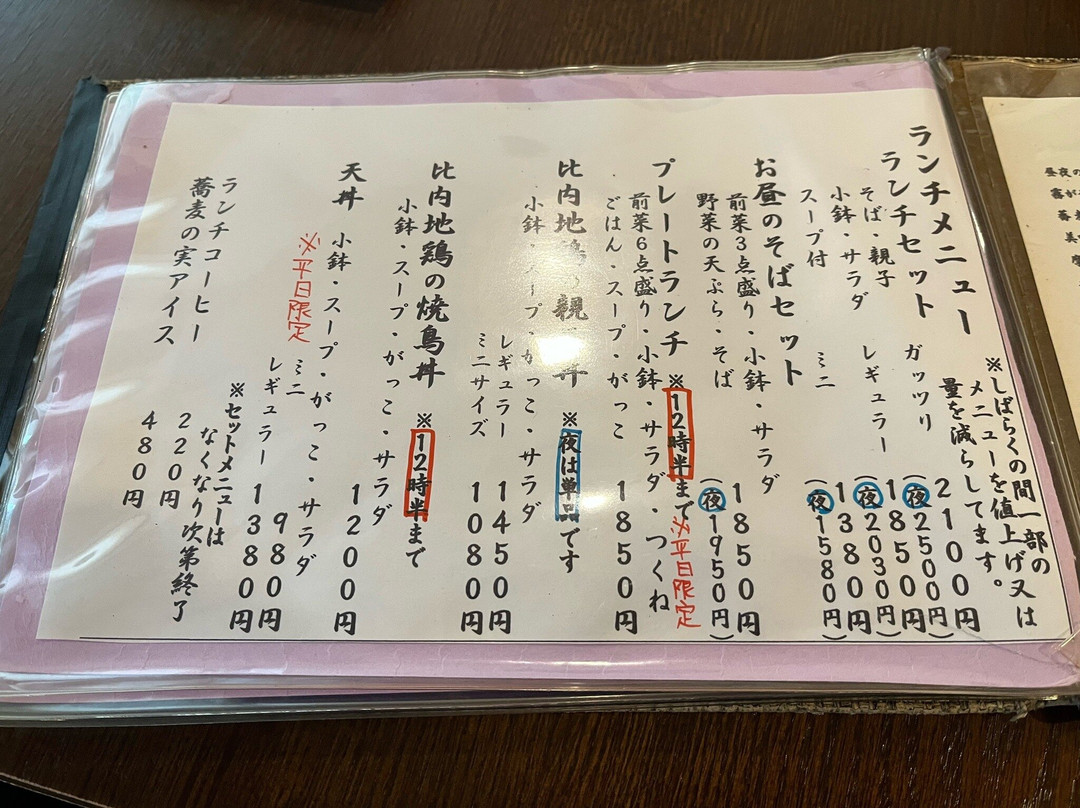 ランチメニュー
※しばらくの間一部の
メニューを値上げ又は
量を減らしてます。
ランチセット
ガッツリ 2100円
(夜2500円)
そば・親子
レギュラー 1850円
(夜2030円)
小鉢・サラダ
ミニ 1380円
スープ付
(夜1580円)
お昼のそばセット 1850円
前菜3点盛り・小鉢・サラダ
(夜1950円)
野菜の天ぷら・そば
プレートランチ ※12時半まで ※平日限定
前菜6点盛り・小鉢・サラダ・つくね
・ごはん・スープ・がっこ 1850円
比内地鶏の親 丼 ※夜は単品です
・小鉢・スープ・がっこ・サラダ
レギュラー 1450円
ミニサイズ 1080円
比内地鶏の焼鳥丼 ※12時半まで
小鉢・スープ・がっこ・サラダ
天丼 1200円
小鉢・スープ・がっこ・サラダ
※平日限定
ミニ 980円
レギュラー 1380円
※セットメニューは
なくなり次第終了
ランチコーヒー 220円
蕎麦の実アイス 480円
昼夜の